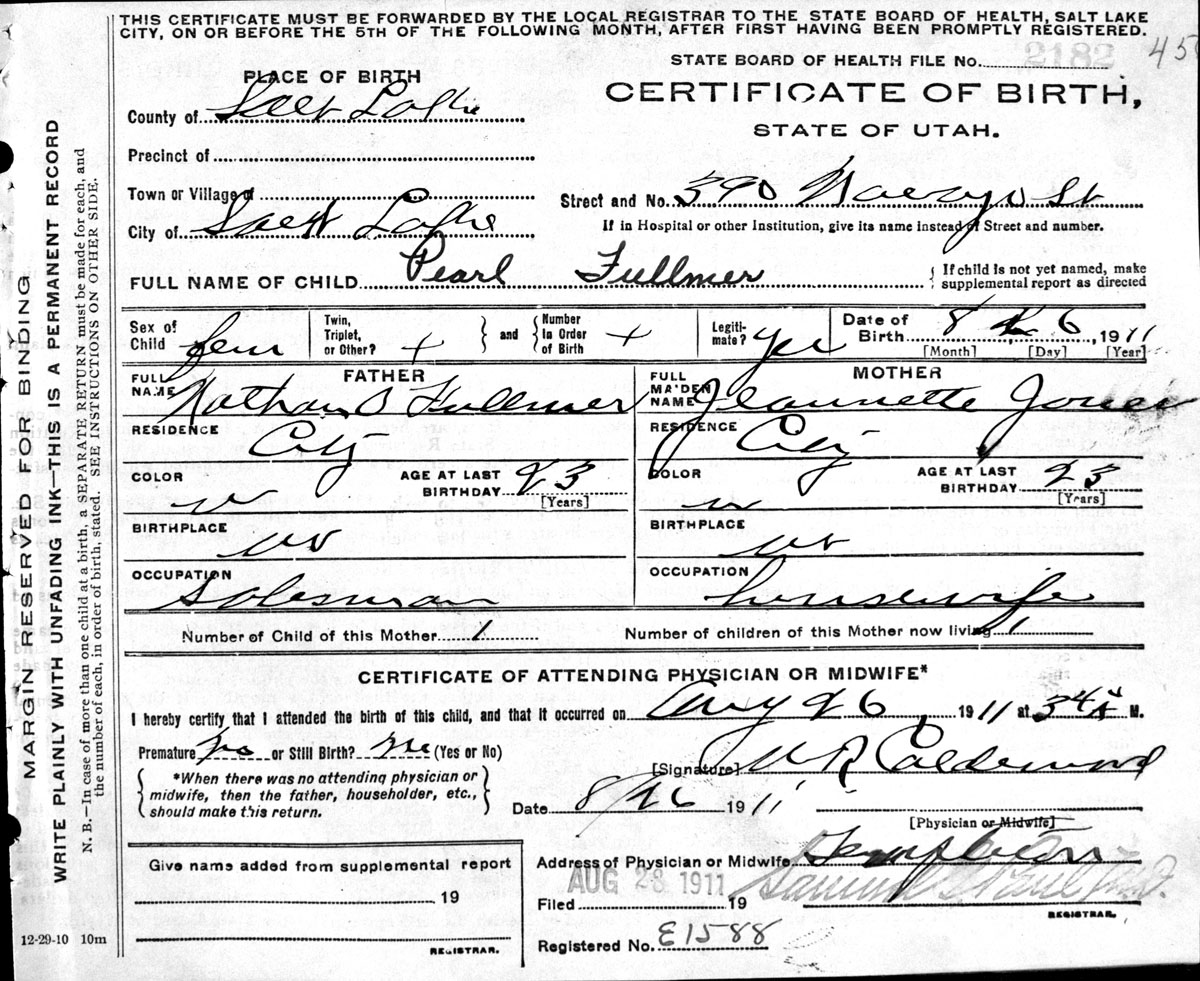 THIS CERTIFICATE MUST BE FORWARDED BY THE LOCAL REGISTRAR TO THE STATE BOARD OF HEALTH, SALT LAKE
CITY, ON OR BEFORE THE 5TH OF THE FOLLOWING MONTH, AFTER FIRST HAVING BEEN PROMPTLY REGISTERED.
STATE BOARD OF HEALTH FILE No. 2182 45
PLACE OF BIRTH
CERTIFICATE OF BIRTH,
STATE OF UTAH.
County of Salt Lake
Precinct of
Town or Village of
Street and No. 390 St
City of Salt Lake
If in Hospital or other Institution, give its name instead of Street and number.
FULL NAME OF CHILD Pearl Fullmer
{ If child is not yet named, make
supplemental report as directed
Sex of Child fem
Twin, Triplet, or Other? +
} and {
Number in Order of Birth +
Legitimate? yes
Date of Birth 8 26 1911
[Month] [Day] [Year]
FATHER
FULL NAME Nathan O Fullmer
RESIDENCE City
COLOR w
AGE AT LAST BIRTHDAY 23
[Years]
BIRTHPLACE
OCCUPATION Salesman
MOTHER
FULL MAIDEN NAME Jeannette Jones
RESIDENCE City
COLOR w
AGE AT LAST BIRTHDAY 23
[Years]
BIRTHPLACE
OCCUPATION housewife
Number of Child of this Mother 1
Number of children of this Mother now living 1
CERTIFICATE OF ATTENDING PHYSICIAN OR MIDWIFE*
I hereby certify that I attended the birth of this child, and that it occurred on Aug 26, 1911 at 3 45 A M.
Premature no or Still Birth? no (Yes or No)
{ *When there was no attending physician or
midwife, then the father, householder, etc.,
should make this return. }
[Signature] W R Calderwood
Date 8/26 1911
[Physician or Midwife]
Address of Physician or Midwife Templeton
AUG 28 1911
Filed 19
Samuel G Paul M.D.
REGISTRAR.
Registered No. E1588
Give name added from supplemental report
19
REGISTRAR.
12-29-10 10m
MARGIN RESERVED FOR BINDING
WRITE PLAINLY WITH UNFADING INK—THIS IS A PERMANENT RECORD
N. B.—In case of more than one child at a birth, a SEPARATE RETURN must be made for each, and
the number of each, in order of birth, stated. SEE INSTRUCTIONS ON OTHER SIDE.